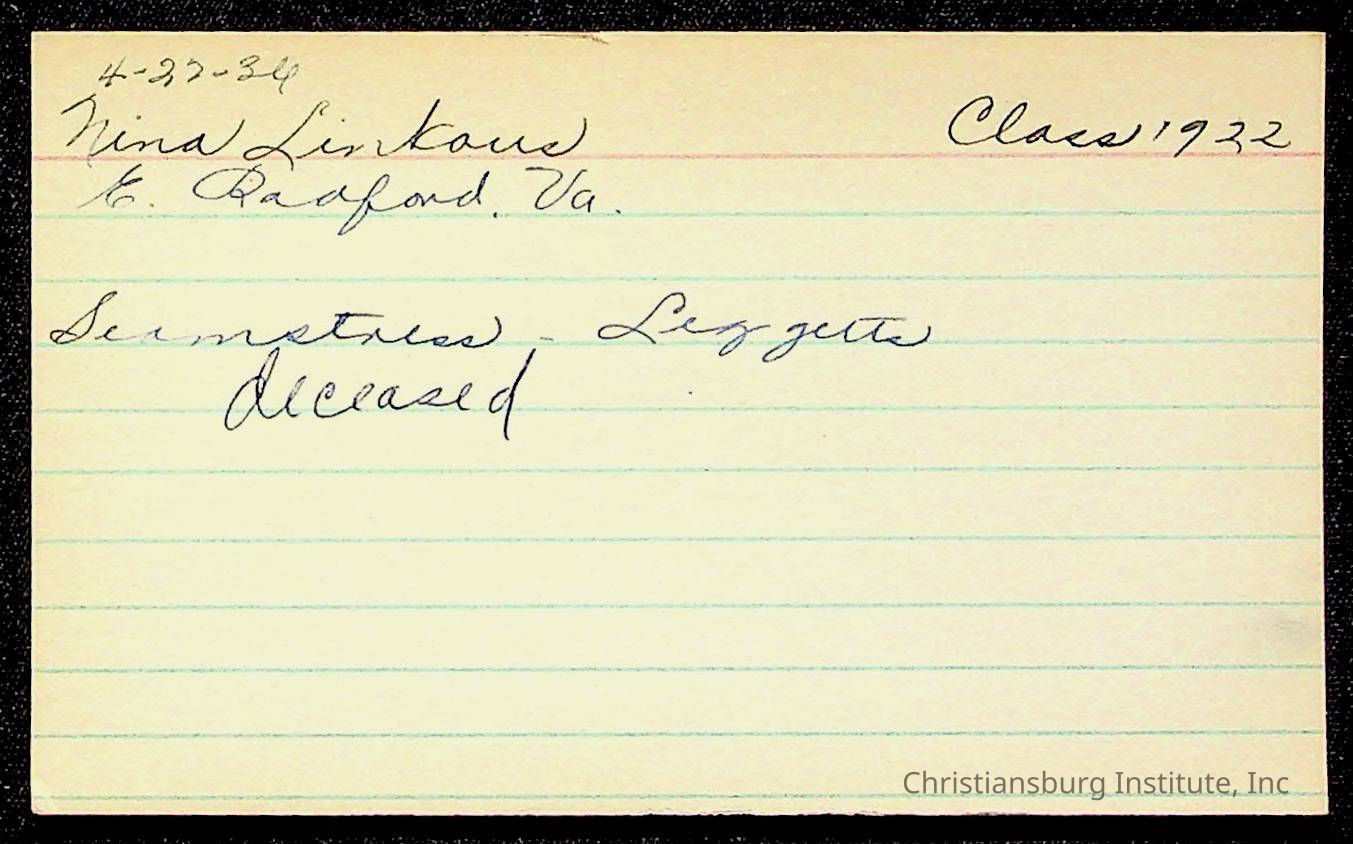 4-27-36
Nina Linkous Class 1922
E. Radford. Va.
Seamstress - Leggetts
deceased
Christiansburg Institute, Inc